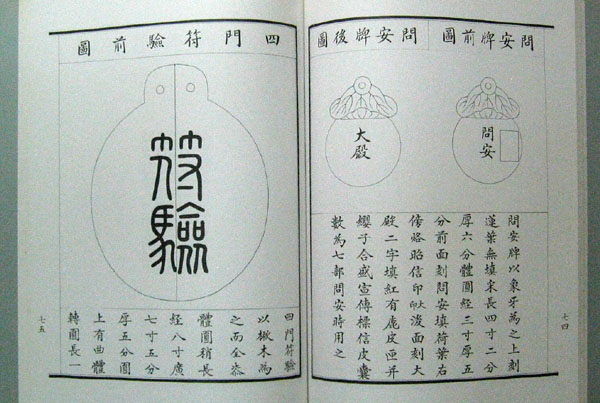 問安牌前圖
問安
問安牌後圖
大殿
問安牌以象牙為之上刻
蓮葉無填朱長四寸二分
厚六分體圓經三寸厚五
分前面刻問安填荷葉右
傍烙昭信印後面刻大
殿二字填紅有鹿皮匣并
纓子合盛宣傳標信皮囊
數為七部問安時用之
七四
四門符驗前圖
符驗
四門符驗
以楸木為
之而全漆
體圓稍長
經八寸廣
七寸五分
厚五分圓
上有曲體
轉圓長一
七五